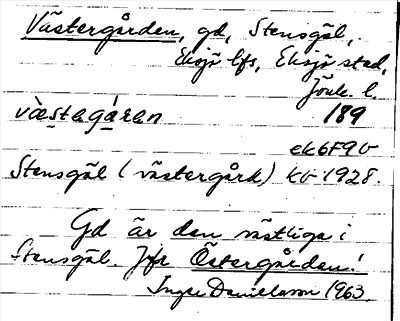 Västergården, gd, Stensgöl,
Eksjö lfs, Eksjö stad,
Jönk. l.
væstagáran 189
ek6F9v
Stensgöl (västergård) kv 1928.
Gd är den västliga i
Stensgöl. Jfr Östergården!
Inger Danielsson 1963.